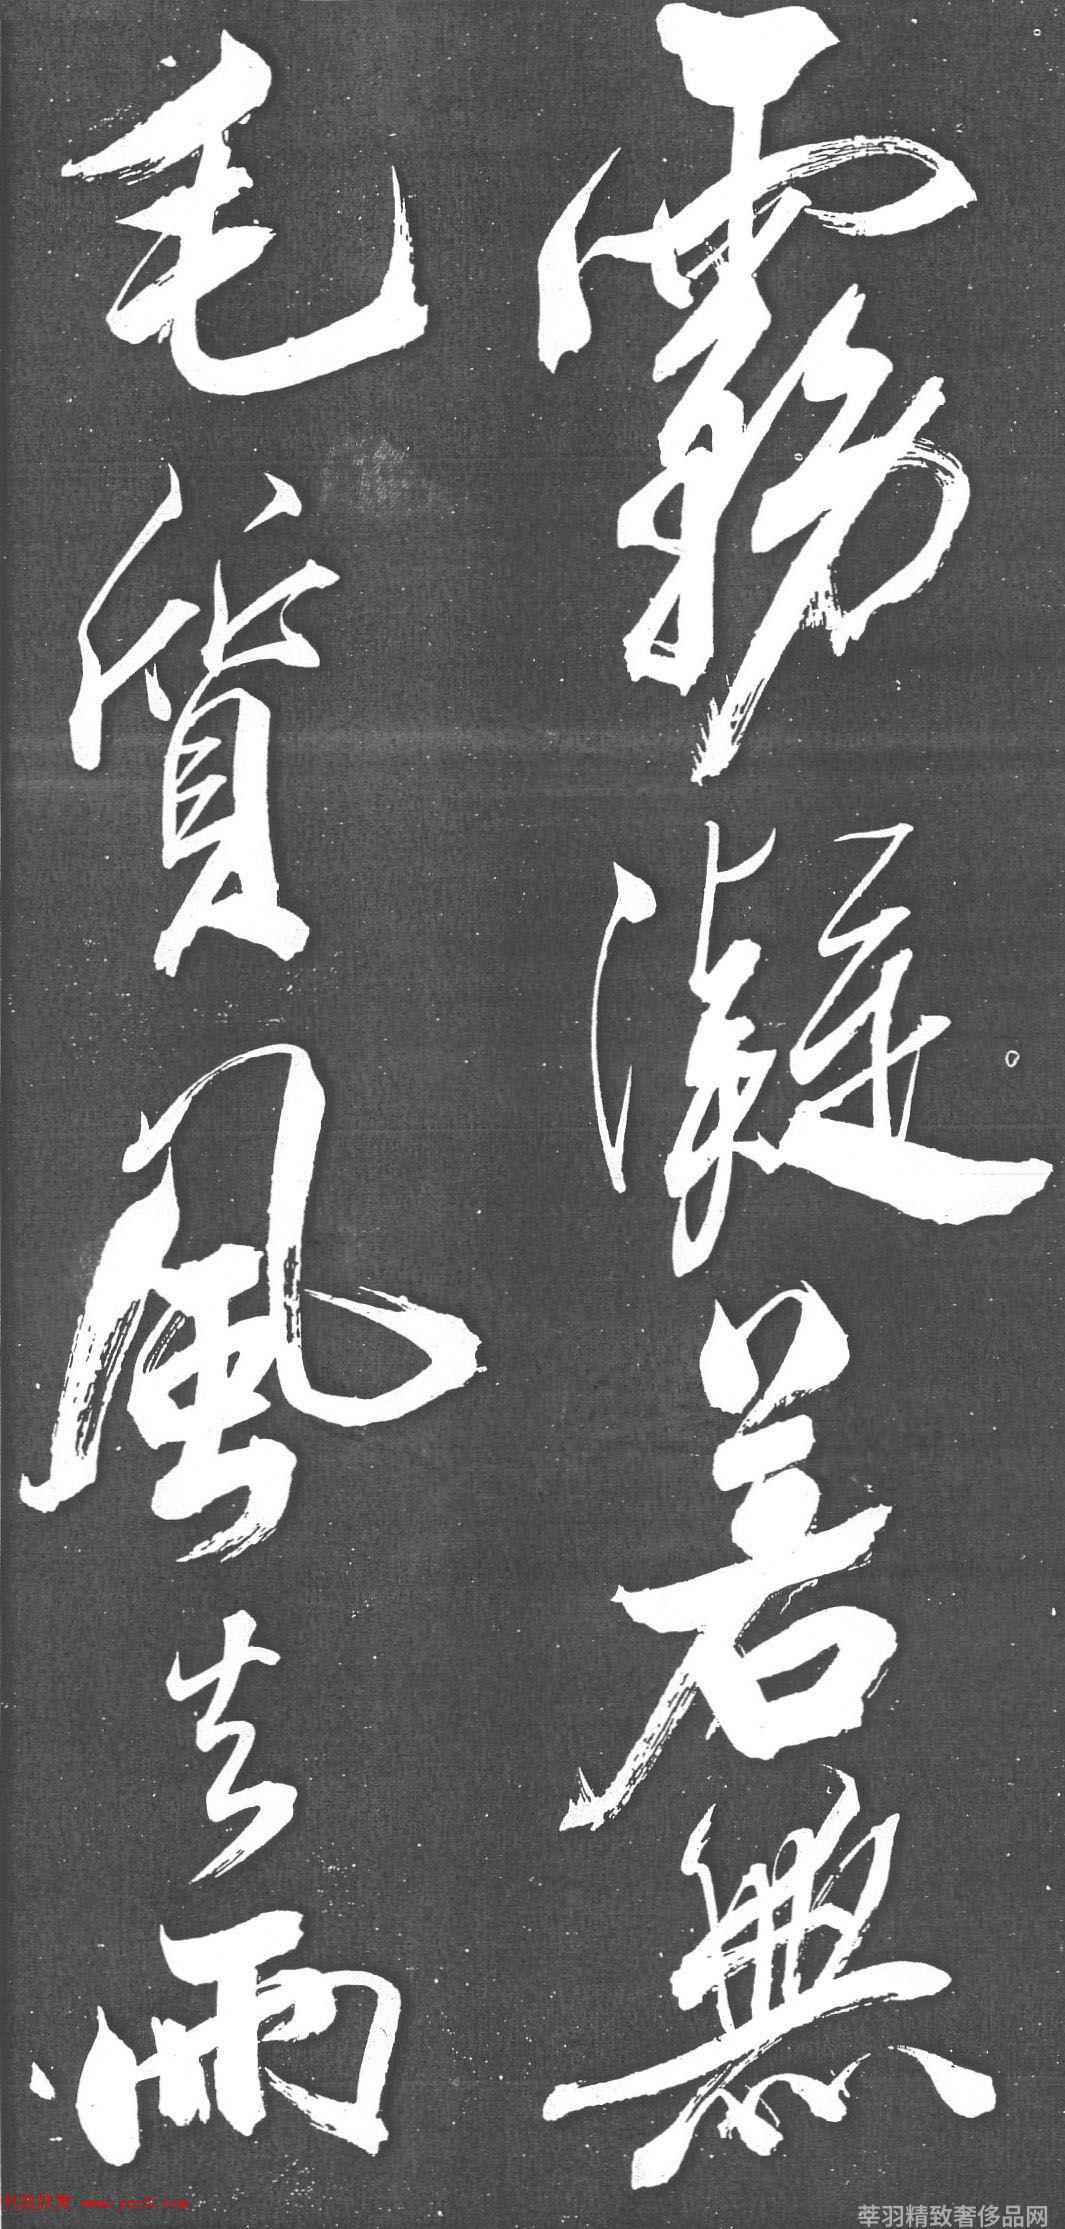 霧凝若無
毛質風去雨
书法欣赏 www.yac8.com
莘羽精致奢侈品网